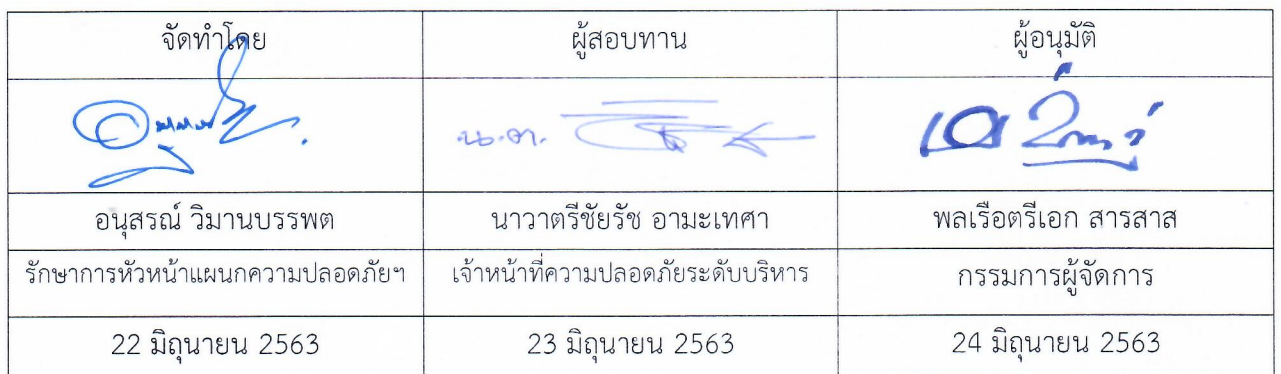 จัดทำโดย ผู้สอบทาน ผู้อนุมัติ
น.ต.
อนุสรณ์ วิมานบรรพต นาวาตรีชัยรัช อามะเทศา พลเรือตรีเอก สารสาส
รักษาการหัวหน้าแผนกความปลอดภัยฯ เจ้าหน้าที่ความปลอดภัยระดับบริหาร กรรมการผู้จัดการ
22 มิถุนายน 2563 23 มิถุนายน 2563 24 มิถุนายน 2563